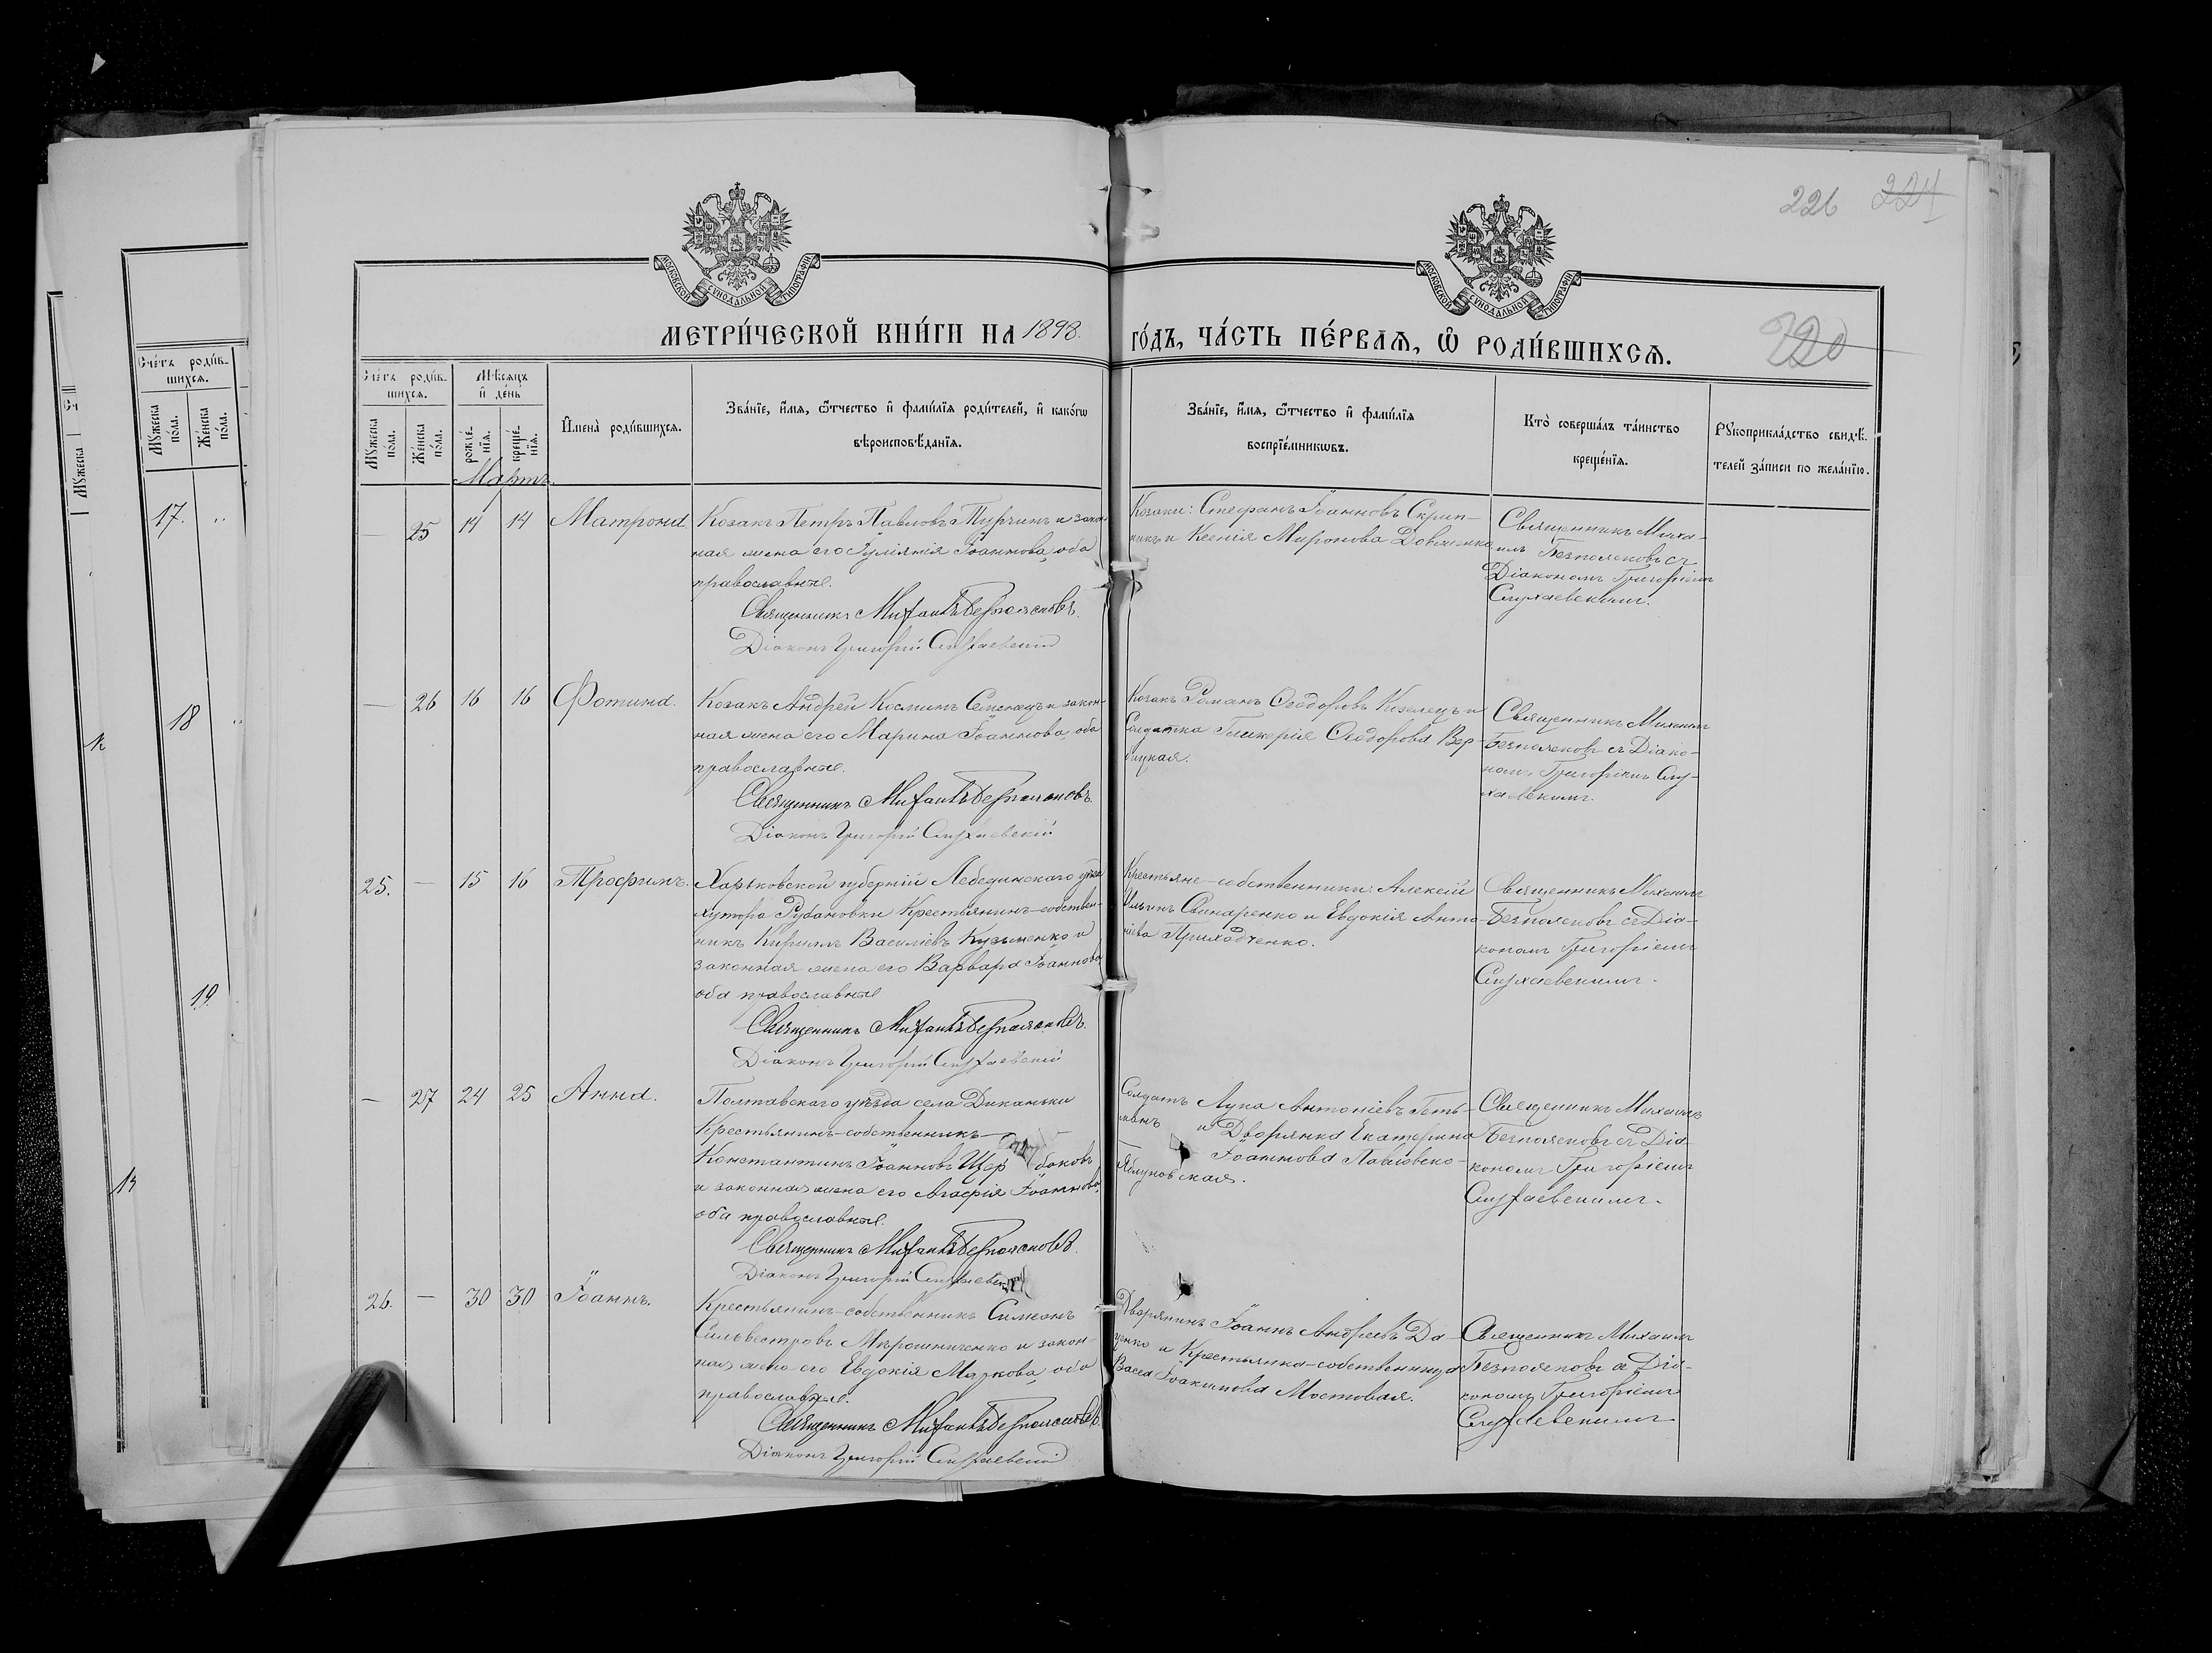 226 224
МОСКОВСКОЙ СѴНОДАЛЬНОЙ ТИПОГРАФІИ
МОСКОВСКОЙ СѴНОДАЛЬНОЙ ТИПОГРАФІИ
МЕТРИ́ЧЕСКОЙ КНИ́ГИ НА 1898. ГО́ДЪ, ЧА́СТЬ ПЕ́РВАѦ, Ѽ РОДИ́ВШИХСѦ.
220
Сче́тъ роди́в-
шихсѧ.
Мꙋ́жеска по́ла.
Же́нска по́ла.
Мѣ́сѧцъ и҆ де́нь
рожде́-
нїѧ.
креще́-
нїѧ.
И҆мена̀ роди́вшихсѧ.
Зва́нїе, и҆́мѧ, ѻ҆́тчество и҆ фами́лїѧ роди́телей, и҆ како́гѡ
вѣроисповѣ́данїѧ.
Зва́нїе, и҆́мѧ, ѻ҆́тчество и҆ фами́лїѧ
воспрїе́мникѡвъ.
Кто̀ соверша́лъ та́инство
креще́нїѧ.
Рꙋкоприкла́дство свидѣ́-
телей за́писи по жела́нїю.
Сче́тъ роди́в-
шихсѧ.
Мꙋ́жеска по́ла.
Же́нска по́ла.
Мꙋ́жеска
17.
18
19.
Мартъ.
— 25 14 14 Матрона
Козакъ Петръ Павловъ Турчинъ и закон-
ная жена его Іуліянія Іоаннова, оба
православные.
Священникъ Михаилъ Безпоясковъ.
Діаконъ Григорій Слухаевскій
Козаки: Стефанъ Іоанновъ Скрип-
никъ и Ксенія Миронова Довженко
Священникъ Миха-
илъ Безпоясковъ съ
Діакономъ Григоріемъ
Слухаевскимъ.
— 26 16 16 Фотина.
Козакъ Андрей Косминъ Семенецъ и закон-
ная жена его Марина Іоаннова, оба
православные.
Священникъ Михаилъ Безпоясковъ.
Діаконъ Григорій Слухаевскій
Козакъ Романъ Ѳеодоровъ Киселецъ и
Солдатка Гликерія Ѳеодорова Вер-
бицкая.
Священникъ Михаилъ
Безпоясковъ съ Діако-
номъ Григоріемъ Слу-
хаевскимъ.
25. — 15 16 Трофимъ.
Харьковской губерніи Лебединскаго уѣзда
хутора Рубановки Крестьянинъ-собствен-
никъ Кириллъ Василіевъ Кузьменко и
законная жена его Варвара Іоаннова,
оба православные
Священникъ Михаилъ Безпоясковъ.
Діаконъ Григорій Слухаевскій
Крестьяне-собственники: Алексій
Ильинъ Свинаренко и Евдокія Анто-
ніева Приходченко.
Священникъ Михаилъ
Безпоясковъ съ Діа-
кономъ Григоріемъ
Слухаевскимъ.
— 27 24 25 Анна.
Полтавскаго уѣзда села Диканьки
Крестьянинъ-собственникъ
Константинъ Іоанновъ Щербаковъ
и законная жена его Агафія Іоаннова,
оба православные.
Священникъ Михаилъ Безпоясковъ.
Діаконъ Григорій Слухаевскій
Солдатъ Лука Антоніевъ Геть-
манъ и Дворянка Екатерина
Іоаннова Павловско-
Яблуновская.
Священникъ Михаилъ
Безпоясковъ съ Діа-
кономъ Григоріемъ
Слухаевскимъ.
26. — 30 30 Іоаннъ.
Крестьянинъ-собственникъ Симеонъ
Сильвестровъ Мирошниченко и закон-
ная жена его Евдокія Маркова, оба
православные.
Священникъ Михаилъ Безпоясковъ.
Діаконъ Григорій Слухаевскій
Дворянинъ Іоаннъ Андреевъ Да-
ценко и Крестьянка-собственница
Васса Іоакимова Мостовая.
Священникъ Михаилъ
Безпоясковъ съ Діа-
кономъ Григоріемъ
Слухаевскимъ